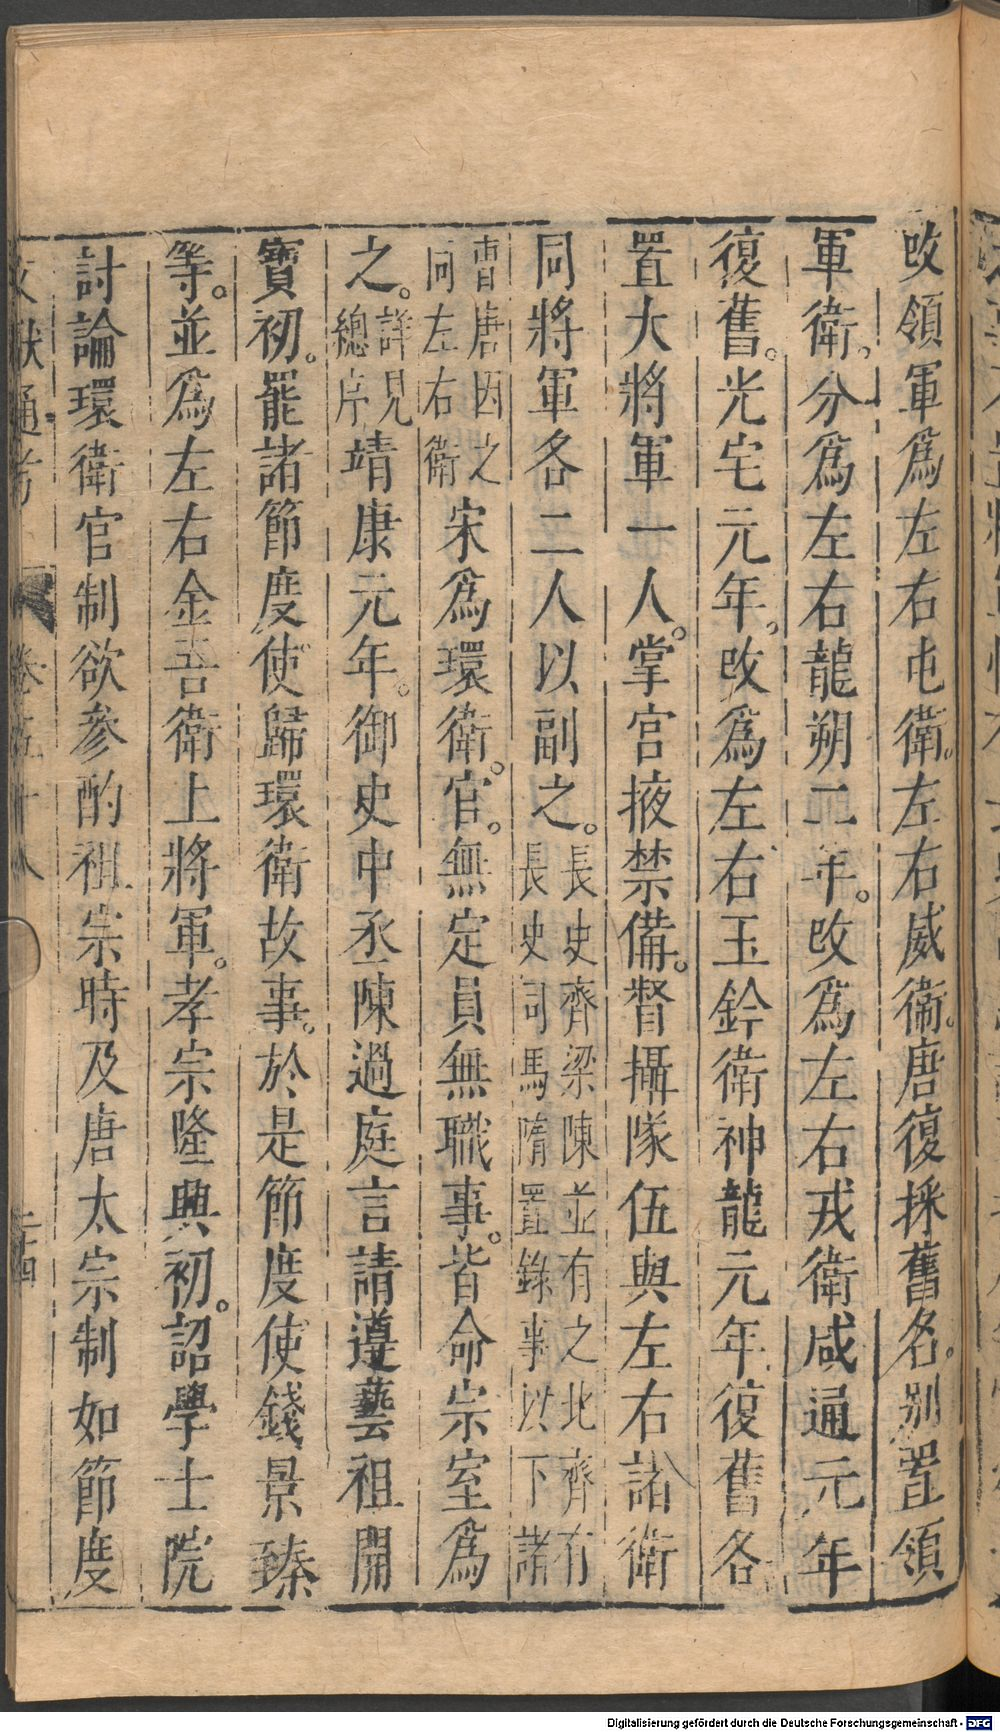 改領軍爲左右屯衛。左右威衛。唐復採舊名。别置領
軍衛。分爲左右龍朔二年。改爲左右戎衛咸通元年
復舊。光宅元年。改爲左右玉鈐衛神龍元年復舊各
置大將軍一人。掌宫掖禁備。督攝隊伍與左右諸衛
同將軍各二人以副之。長史齊梁陳並有之北齊有
長史司馬隋置錄事以下諸
曹唐因之
同左右衛
宋爲環衛。官。無定員無職事。皆命宗室爲
之。詳見
總序
靖康元年。御史中丞陳過庭言請遵藝祖開
寶初。罷諸節度使歸環衛故事。於是節度使錢景臻
等。並爲左右金吾衛上將軍。孝宗隆興初。詔學士院
討論環衛官制欲參酌祖宗時及唐太宗制如節度
文獻通考 卷五十八 二十四
Digitalisierung gefördert durch die Deutsche Forschungsgemeinschaft - DFG